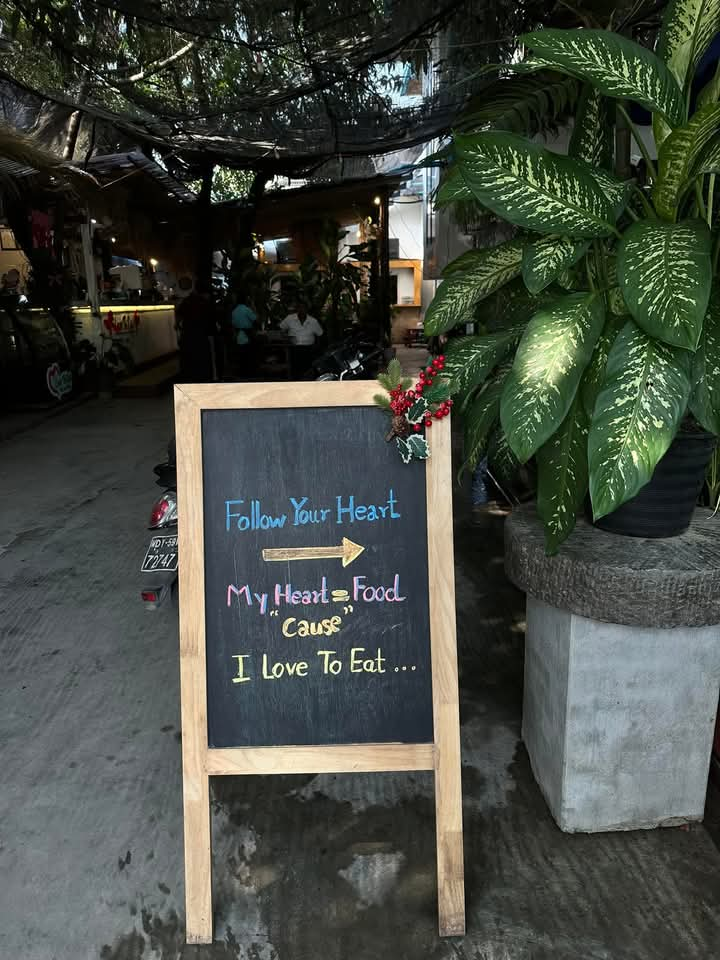 Follow Your Heart
My Heart = Food
"Cause"
I Love To Eat ...
72747